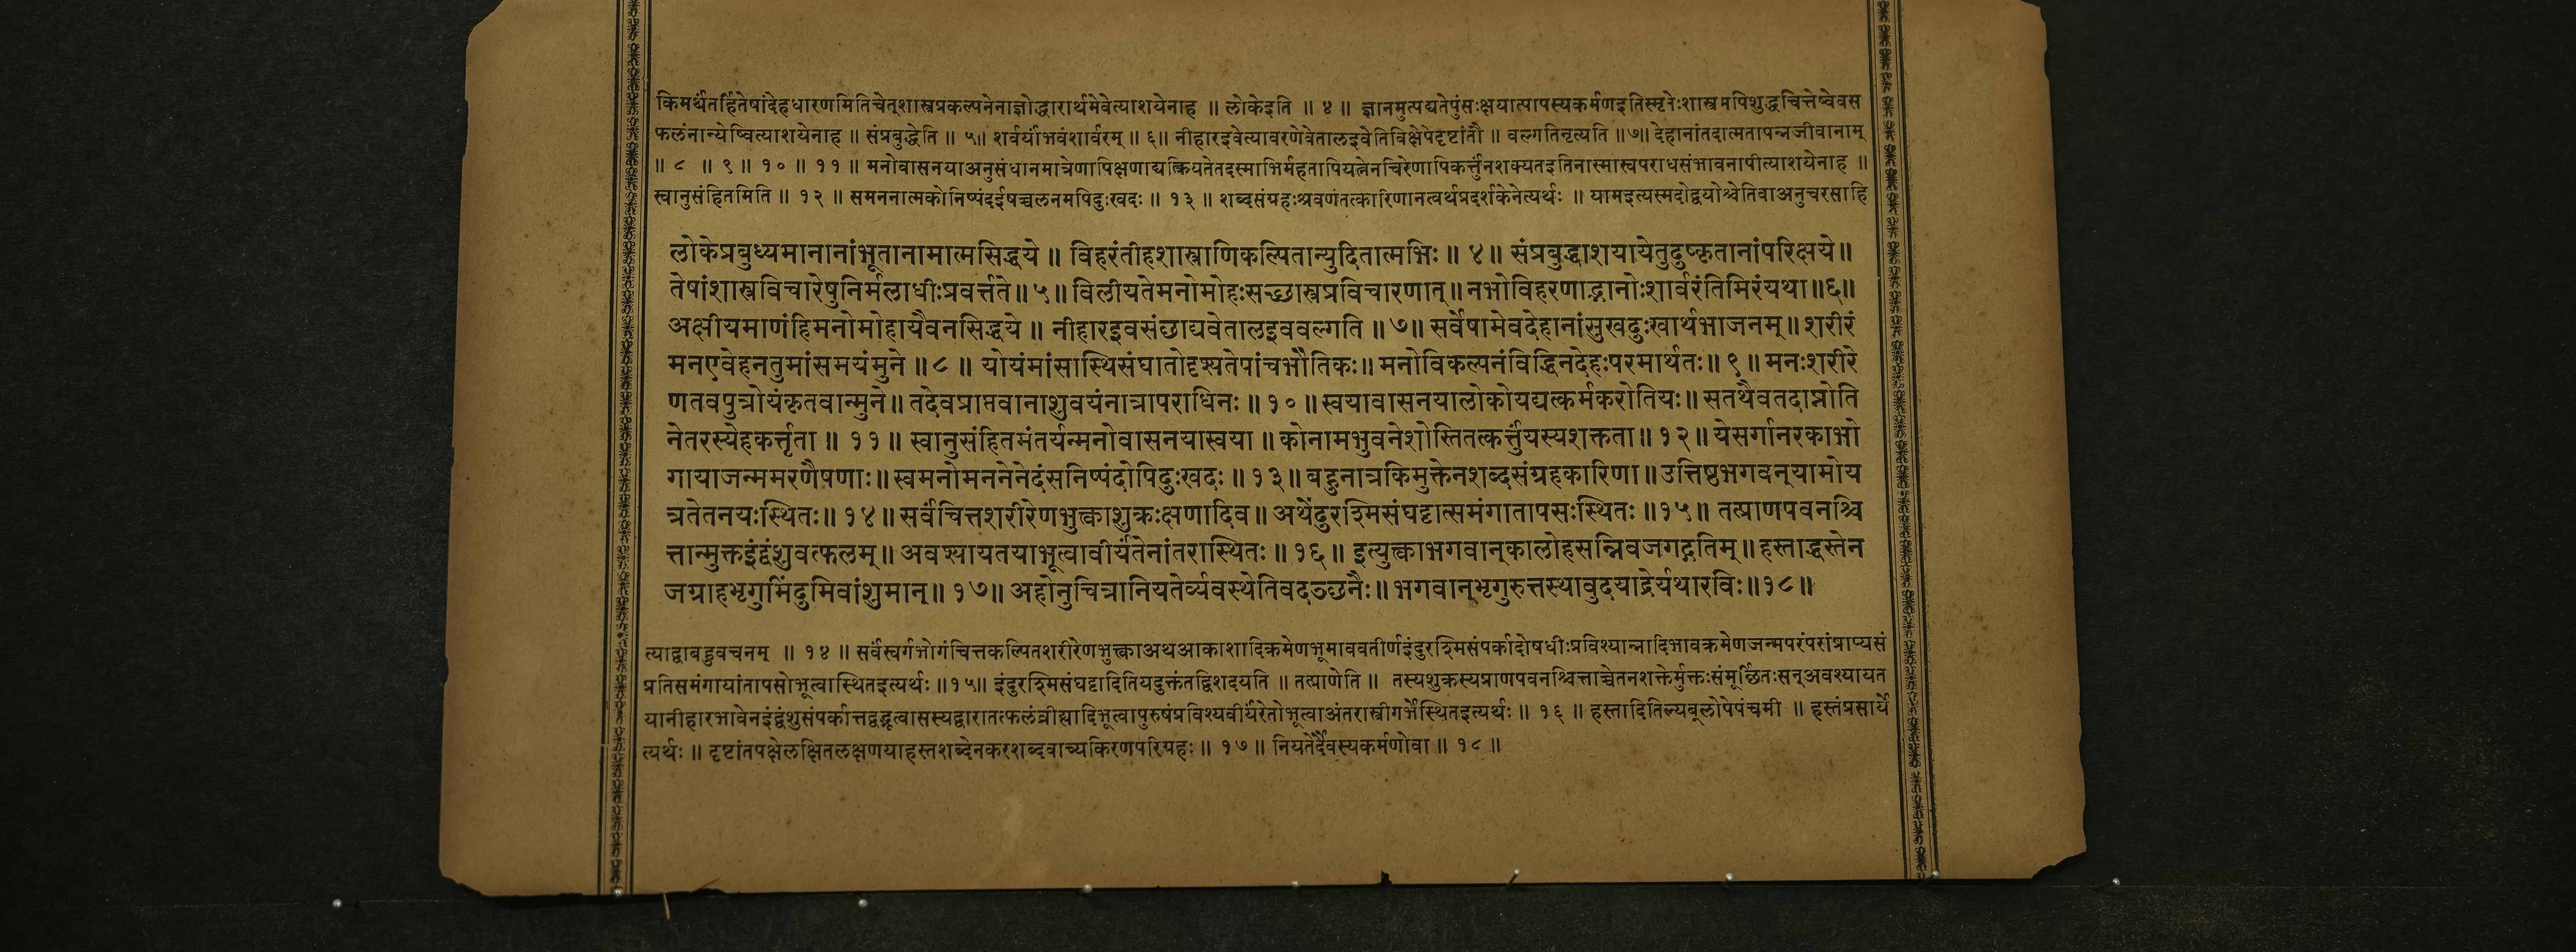 किमर्थंतर्हितेषांदेहधारणमितिचेत्शास्त्रप्रकल्पनेनाज्ञोद्धारार्थमेवेत्याशयेनाह ॥ लोकेइति ॥ ४ ॥ ज्ञानमुत्पद्यतेपुंसःक्षयात्पापस्यकर्मणइतिस्मृतेःशास्त्रमपिशुद्धचित्तेष्वेवस
फलंनान्येष्वित्याशयेनाह ॥ संप्रबुद्धेति ॥ ५॥ शर्वर्यांभवंशार्वरम् ॥ ६॥ नीहारइवेत्यावरणेवेतालइवेतिविक्षेपेदृष्टांतौ ॥ वल्गतिनृत्यति ॥७॥ देहानांतदात्मतापन्नजीवानाम्
॥ ८ ॥ ९ ॥ १० ॥ ११ ॥ मनोवासनयाअनुसंधानमात्रेणापिक्षणाद्यत्क्रियतेतदस्माभिर्महतापियत्नेनचिरेणापिकर्त्तुंनशक्यतइतिनास्मास्वपराधसंभावनापीत्याशयेनाह ॥
स्वानुसंहितमिति ॥ १२ ॥ समननात्मकोनिष्पंदईषच्चलनमपिदुःखदः ॥ १३ ॥ शब्दसंग्रहःश्रवणंतत्कारिणानत्वर्थप्रदर्शकेनेत्यर्थः ॥ यामइत्यस्मदोद्वयोश्चेतिवाअनुचरसाहि
लोकेप्रबुध्यमानानांभूतानामात्मसिद्धये ॥ विहरंतीहशास्त्राणिकल्पितान्युदितात्मभिः ॥ ४॥ संप्रबुद्धाशयायेतुदुष्कृतानांपरिक्षये॥
तेषांशास्त्रविचारेषुनिर्मलाधीःप्रवर्त्तते॥५॥ विलीयतेमनोमोहःसच्छास्त्रप्रविचारणात्॥नभोविहरणाद्भानोःशार्वरंतिमिरंयथा॥६॥
अक्षीयमाणंहिमनोमोहायैवनसिद्धये ॥ नीहारइवसंछाद्यवेतालइववल्गति ॥७॥ सर्वेषामेवदेहानांसुखदुःखार्थभाजनम्॥ शरीरं
मनएवेहनतुमांसमयंमुने ॥८॥ योयंमांसास्थिसंघातोदृश्यतेपांचभौतिकः॥ मनोविकल्पनंविद्धिनदेहःपरमार्थतः॥९॥ मनःशरीरे
णतवपुत्रोयंकृतवान्मुने॥ तदेवप्राप्तवानाशुवयंनात्रापराधिनः ॥१०॥ स्वयावासनयालोकोयद्यत्कर्मकरोतियः॥ सतथैवतदाप्नोति
नेतरस्येहकर्त्तृता ॥ ११॥ स्वानुसंहितमंतर्यन्मनोवासनयास्वया ॥कोनामभुवनेशोस्तितत्कर्त्तुंयस्यशक्तता॥१२॥ येसर्गानरकाभो
गायाजन्ममरणैषणाः॥स्वमनोमननेनेदंसनिष्पंदोपिदुःखदः ॥१३॥ बहुनात्रकिमुक्तेनशब्दसंग्रहकारिणा॥उत्तिष्ठभगवन्यामोय
त्रतेतनयःस्थितः॥१४॥ सर्वंचित्तशरीरेणभुक्त्वाशुक्रःक्षणादिव॥ अथेंदुरश्मिसंघट्टात्समंगातापसःस्थितः ॥१५॥ तत्प्राणपवनश्चि
त्तान्मुक्तइंद्वंशुवत्फलम्॥ अवश्यायतयाभूत्वावीर्यंतेनांतरास्थितः ॥१६॥ इत्युक्त्वाभगवान्कालोहसन्निवजगद्गतिम्॥हस्ताद्धस्तेन
जग्राहभृगुमिंदुमिवांशुमान्॥ १७॥ अहोनुचित्रानियतेर्व्यवस्थेतिवदञ्छनैः॥ भगवान्भृगुरुत्तस्थावुदयाद्रेर्यथारविः॥१८॥
त्याद्वाबहुवचनम् ॥ १४ ॥ सर्वंस्वर्गभोगंचित्तकल्पितशरीरेणभुक्त्वाअथआकाशादिक्रमेणभूमाववतीर्णइंदुरश्मिसंपर्कादोषधीःप्रविश्यान्नादिभावक्रमेणजन्मपरंपरांप्राप्यसं
प्रतिसमंगायांतापसोभूत्वास्थितइत्यर्थः॥१५॥ इंदुरश्मिसंघट्टादितियदुक्तंतद्विशदयति ॥ तत्प्राणेति ॥ तस्यशुक्रस्यप्राणपवनश्चित्ताच्चेतनशक्तेर्मुक्तःसंमूर्छितःसन्अवश्यायत
यानीहारभावेनइंद्वंशुसंपर्कात्तद्वद्भूत्वासस्यद्वारातत्फलंव्रीह्यादिभूत्वापुरुषंप्रविश्यवीर्यंरेतोभूत्वाअंतरास्त्रीगर्भेस्थितइत्यर्थः ॥ १६ ॥ हस्तादितिल्यब्लोपेपंचमी ॥ हस्तंप्रसार्ये
त्यर्थः ॥ दृष्टांतपक्षेलक्षितलक्षणयाहस्तशब्देनकरशब्दवाच्यकिरणपरिग्रहः ॥ १७ ॥ नियतेर्दैवस्यकर्मणोवा ॥ १८ ॥